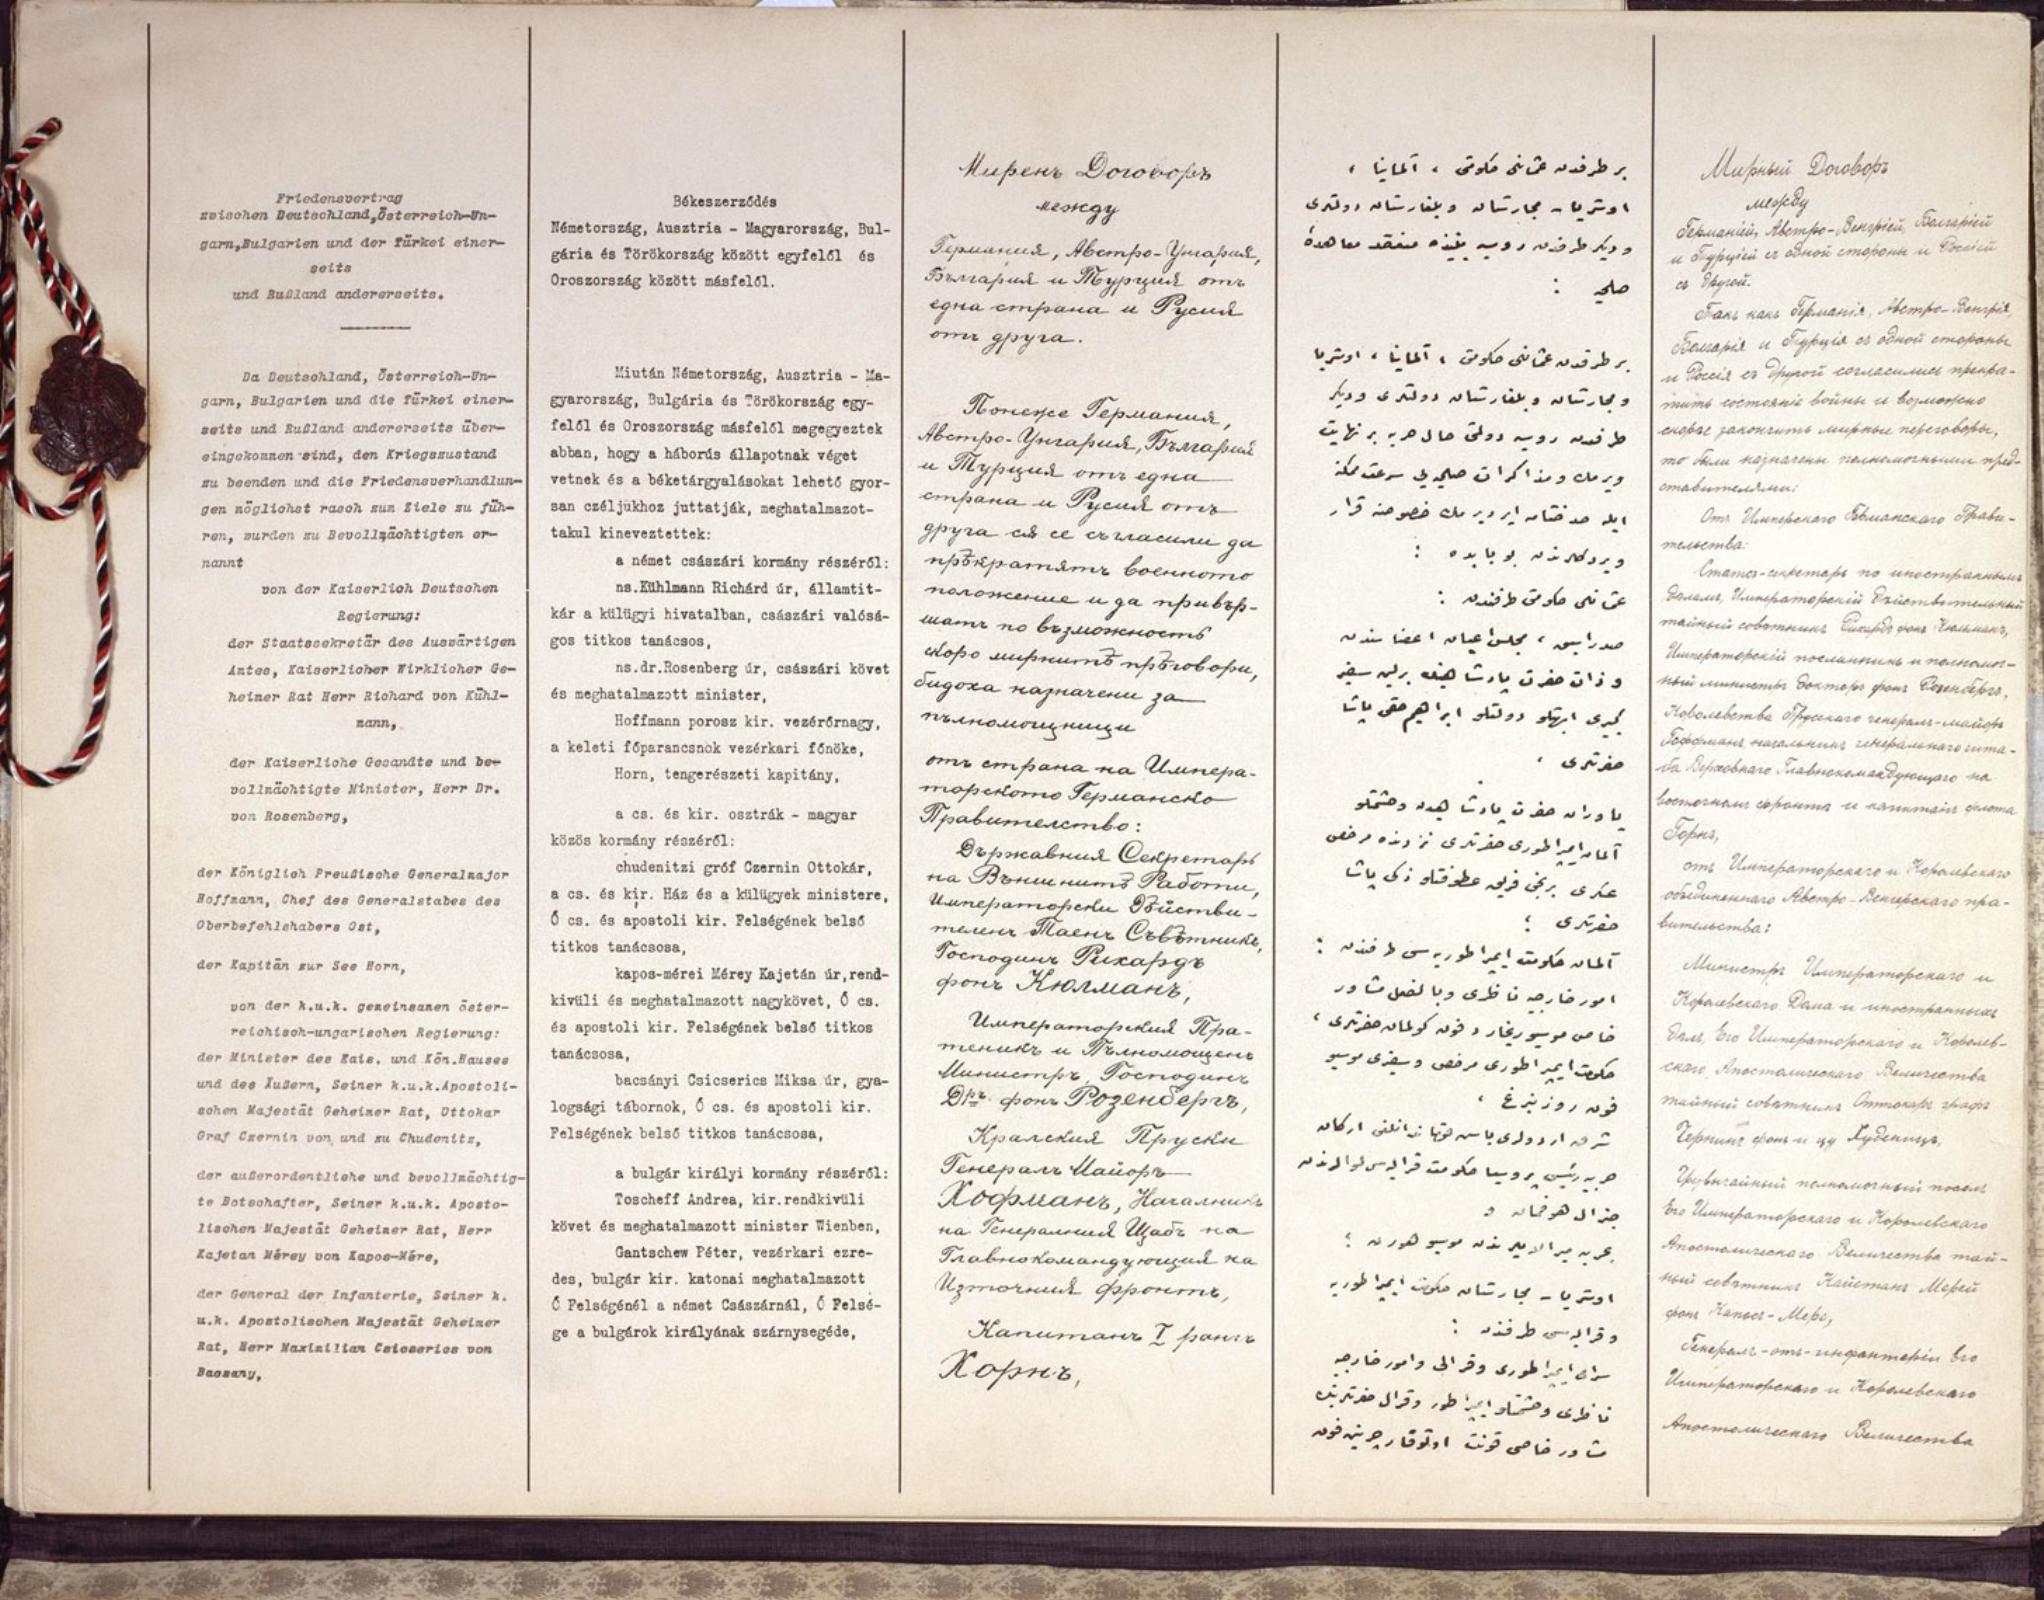 Friedensvertrag
zwischen Deutschland,Österreich-Un-
garn,Bulgarien und der Türkei einer-
seits
und Rußland andererseits.
Da Deutschland, Österreich-Un-
garn, Bulgarien und die Türkei einer-
seits und Rußland andererseits über-
eingekommen sind, den Kriegszustand
zu beenden und die Friedensverhandlun-
gen möglichst rasch zum Ziele zu füh-
ren, wurden zu Bevollmächtigten er-
nannt
von der Kaiserlich Deutschen
Regierung:
der Staatssekretär des Auswärtigen
Amtes, Kaiserlicher Wirklicher Ge-
heimer Rat Herr Richard von Kühl-
mann,
der Kaiserliche Gesandte und be-
vollmächtigte Minister, Herr Dr.
von Rosenberg,
der Königlich Preußische Generalmajor
Hoffmann, Chef des Generalstabes des
Oberbefehlshabers Ost,
der Kapitän zur See Horn,
von der k.u.k. gemeinsamen öster-
reichisch-ungarischen Regierung:
der Minister des Kais. und Kön.Hauses
und des Äußern, Seiner k.u.k.Apostoli-
schen Majestät Geheimer Rat, Ottokar
Graf Czernin von und zu Chudenitz,
der außerordentliche und bevollmächtig-
te Botschafter, Seiner k.u.k. Aposto-
lischen Majestät Geheimer Rat, Herr
Kajetan Mérey von Kapos-Mére,
der General der Infanterie, Seiner k.
u.k. Apostolischen Majestät Geheimer
Rat, Herr Maximilian Csicserics von
Bacsany,
Békeszerződés
Németország, Ausztria - Magyarország, Bul-
gária és Törökország között egyfelől és
Oroszország között másfelől.
Miután Németország, Ausztria - Ma-
gyarország, Bulgária és Törökország egy-
felől és Oroszország másfelől megegyeztek
abban, hogy a háborús állapotnak véget
vetnek és a béketárgyalásokat lehető gyor-
san czéljukhoz juttatják, meghatalmazot-
takul kineveztettek:
a német császári kormány részéről:
ns.Kühlmann Richárd úr, államtit-
kár a külügyi hivatalban, császári valósá-
gos titkos tanácsos,
ns.dr.Rosenberg úr, császári követ
és meghatalmazott minister,
Hoffmann porosz kir. vezérőrnagy,
a keleti főparancsnok vezérkari főnöke,
Horn, tengerészeti kapitány,
a cs. és kir. osztrák - magyar
közös kormány részéről:
chudenitzi gróf Czernin Ottokár,
a cs. és kir. Ház és a külügyek ministere,
Ő cs. és apostoli kir. Felségének belső
titkos tanácsosa,
kapos-mérei Mérey Kajetán úr,rend-
kivüli és meghatalmazott nagykövet, Ő cs.
és apostoli kir. Felségének belső titkos
tanácsosa,
bacsányi Csicserics Miksa úr, gya-
logsági tábornok, Ő cs. és apostoli kir.
Felségének belső titkos tanácsosa,
a bulgár királyi kormány részéről:
Toscheff Andrea, kir.rendkivüli
követ és meghatalmazott minister Wienben,
Gantschew Péter, vezérkari ezre-
des, bulgár kir. katonai meghatalmazott
Ő Felségénél a német Császárnál, Ő Felsé-
ge a bulgárok királyának szárnysegéde,
Миренъ Договоръ
между
Германия, Австро-Унгария,
България и Турция отъ
една страна и Русия
отъ друга.
Понеже Германия,
Австро-Унгария, България
и Турция отъ една
страна и Русия отъ
друга ся се съгласили да
прѣкратятъ военното
положение и да привър-
шатъ по възможность
скоро мирнитѣ прѣговори,
бидоха назначени за
пълномощници
отъ страна на Импера-
торското Германско
Правителство:
Държавния Секретарь
на Външнитѣ Работи,
Императорски Дѣйстви-
теленъ Таенъ Съвѣтникъ,
Господинъ Рихардъ
фонъ Кюлманъ,
Императорския Пра-
теникъ и Пълномощенъ
Министръ, Господинъ
Д-ръ фонъ Розенбергъ,
Кралския Пруски
Генералъ Майоръ
Хофманъ, Началникъ
на Генералния Щабъ на
Главнокомандующия на
Източния фронтъ,
Капитанъ I рангъ
Хорнъ,
بر طرفدن عثمانلی حکومتی ، آلمانیا ،
اوستریا - مجارستان و بلغارستان دولتلری
و دیگر طرفدن روسیه بیننده منعقد معاهدهٔ
صلحیه :
بر طرفدن عثمانلی حکومتی ، آلمانیا ، اوستریا
و مجارستان و بلغارستان دولتلری و دیگر
طرفدن روسیه دولتی حال حربه بر نهایت
ویرمك و مذاکرات صلحیه‌یی سرعت ممکنه
ایله
عثمانلی حکومتی طرفندن :
صدر اسبق ، مجلس اعیان اعضاسندن
و ذات حضرت پادشاهینك برلین سفیر
کبیری ابهتلو دولتلو ابراهیم حقی پاشا
حضرتلری ،
یاوران حضرت پادشاهیدن و حشمتلو
آلمان ایمپراطوری حضرتلری نزدنده مرخص
عسکری برنجی فریق عطوفتلو ذکی پاشا
حضرتلری ؛
آلمان حکومت ایمپراطوریه‌سی طرفندن :
امور خارجیه ناظری و بالفعل مشاور
خاص موسیو ریخارد فون کولمان حضرتلری ،
حکومت ایمپراطوری مرخص و سفیری موسیو
فون روزنبرغ ،
شرق اردولری باش قوماندانلغی ارکان
حربیه رئیسی پروسیا حکومت قرالیه‌سی لوالرندن
جنرال هوفمان و
بحریه میرالایلرندن موسیو هورن ؛
اوستریا - مجارستان حکومت ایمپراطوریه
و قرالیه‌سی طرفندن :
سرای ایمپراطوری و قرالی و امور خارجیه
ناظری و حشمتلو ایمپراطور و قرال حضرتلرینك
مشاور خاصی قونت اوتوقار چرنین فون
Мирный Договоръ
между
Германіей, Австро-Венгріей, Болгаріей
и Турціей съ одной стороны и Россіей
съ другой.
Такъ какъ Германія, Австро-Венгрія,
Болгарія и Турція съ одной стороны
и Россія съ другой согласились прекра-
тить состояніе войны и возможно
скорѣе закончить мирные переговоры,
то были назначены полномочными пред-
ставителями:
Отъ Имперскаго Германскаго Прави-
тельства:
Статсъ-секретарь по иностраннымъ
дѣламъ, Императорскій дѣйствительный
тайный совѣтникъ Рихардъ фонъ Кюльманъ,
Императорскій посланникъ и полномоч-
ный министръ докторъ фонъ Розенбергъ,
Королевства Прусскаго генералъ-майоръ
Гофманъ, начальникъ генеральнаго шта-
ба Верховнаго Главнокомандующаго на
восточномъ фронтѣ и капитанъ флота
Горнъ,
отъ Императорскаго и Королевскаго
объединеннаго Австро-Венгерскаго пра-
вительства:
Министръ Императорскаго и
Королевскаго Дома и иностранныхъ
дѣлъ, Его Императорскаго и Королев-
скаго Апостолическаго Величества
тайный совѣтникъ Оттокаръ графъ
Чернинъ фонъ и цу Худеницъ,
Чрезвычайный полномочный посолъ
Его Императорскаго и Королевскаго
Апостолическаго Величества тай-
ный совѣтникъ Кайетанъ Мерей
фонъ Капосъ-Мере,
Генералъ-отъ-инфантеріи Его
Императорскаго и Королевскаго
Апостолическаго Величества